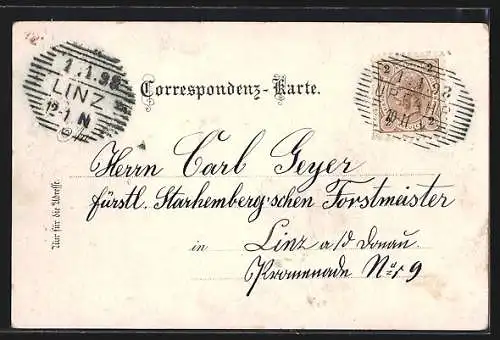 1.1.98
LINZ
12-1 N
Correspondenz-Karte.
2 2
Herrn Carl Geyer
fürstl. Starhemberg'schen Forstmeister
in Linz a/d Donau
Promenade No. 9
Nur für die Adresse.